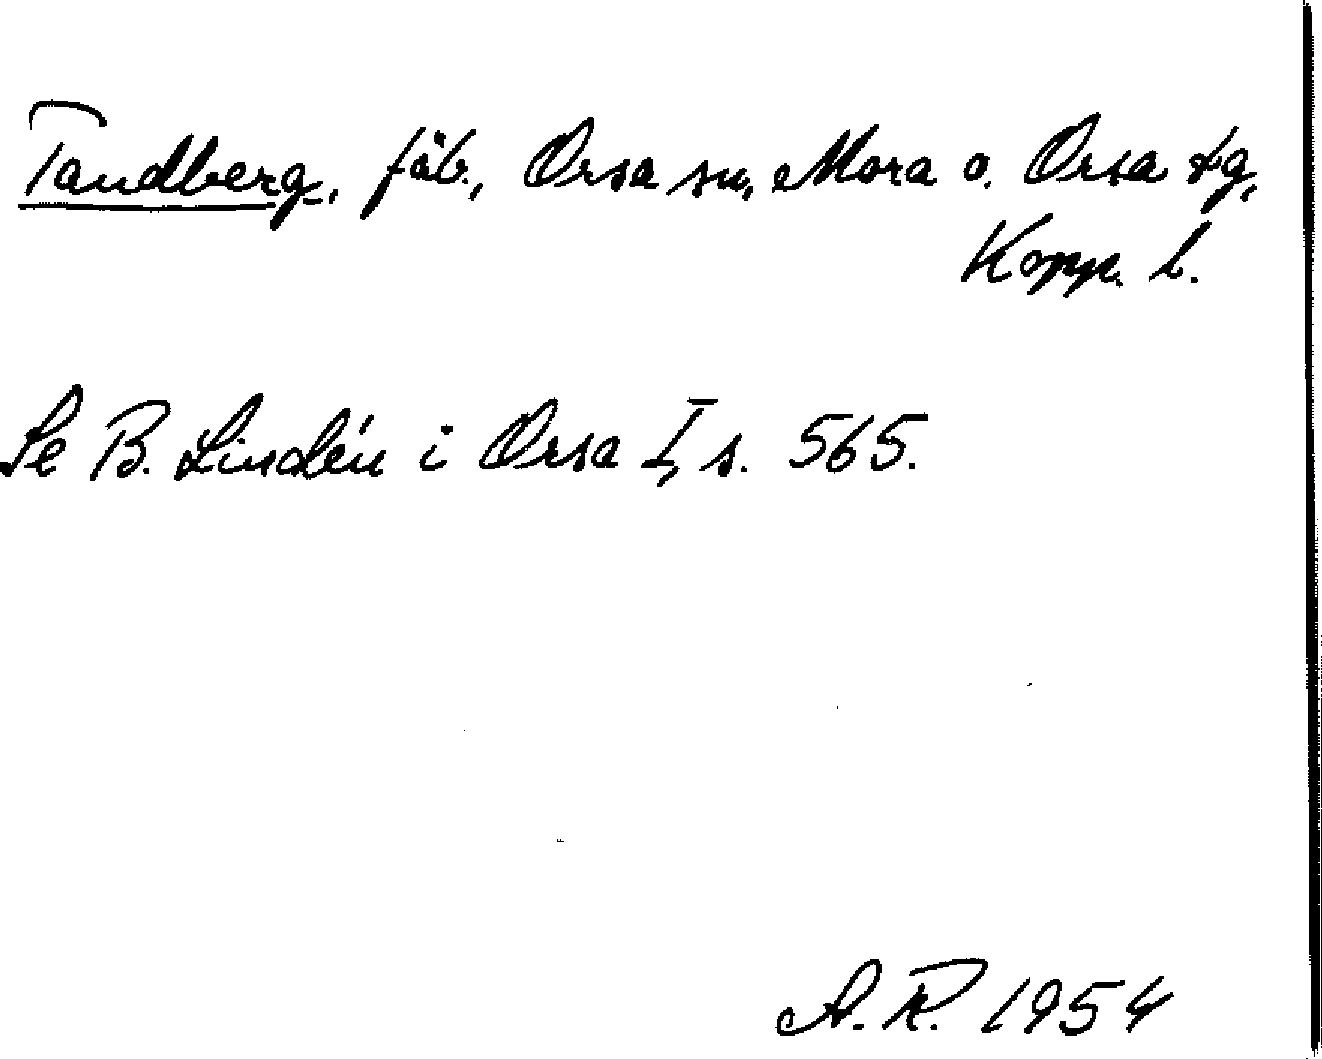 Tandberg, fäb., Orsa sn, Mora o. Orsa tg,
Kopp. l.
Se B. Lindén i Orsa I, s. 565.
A. R. 1954